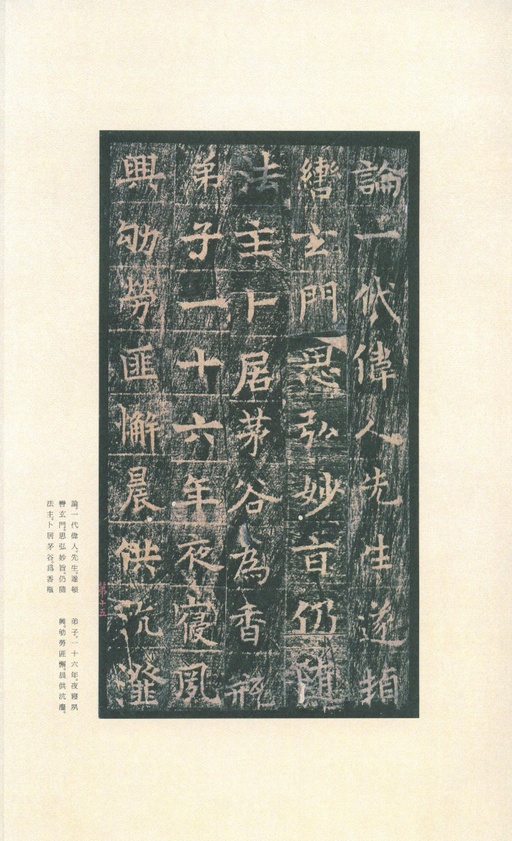 論一代偉人先生遂頓
轡玄門思弘妙旨仍隨
法主卜居茅谷為香瓶
弟子一十六年夜寢夙
興劬勞匪懈晨供沆瀣
論一代偉人。先生遂頓
轡玄門。思弘妙旨。仍隨
法主。卜居茅谷。爲香瓶
弟子。一十六年。夜寢夙
興。劬勞匪懈。晨供沆瀣。